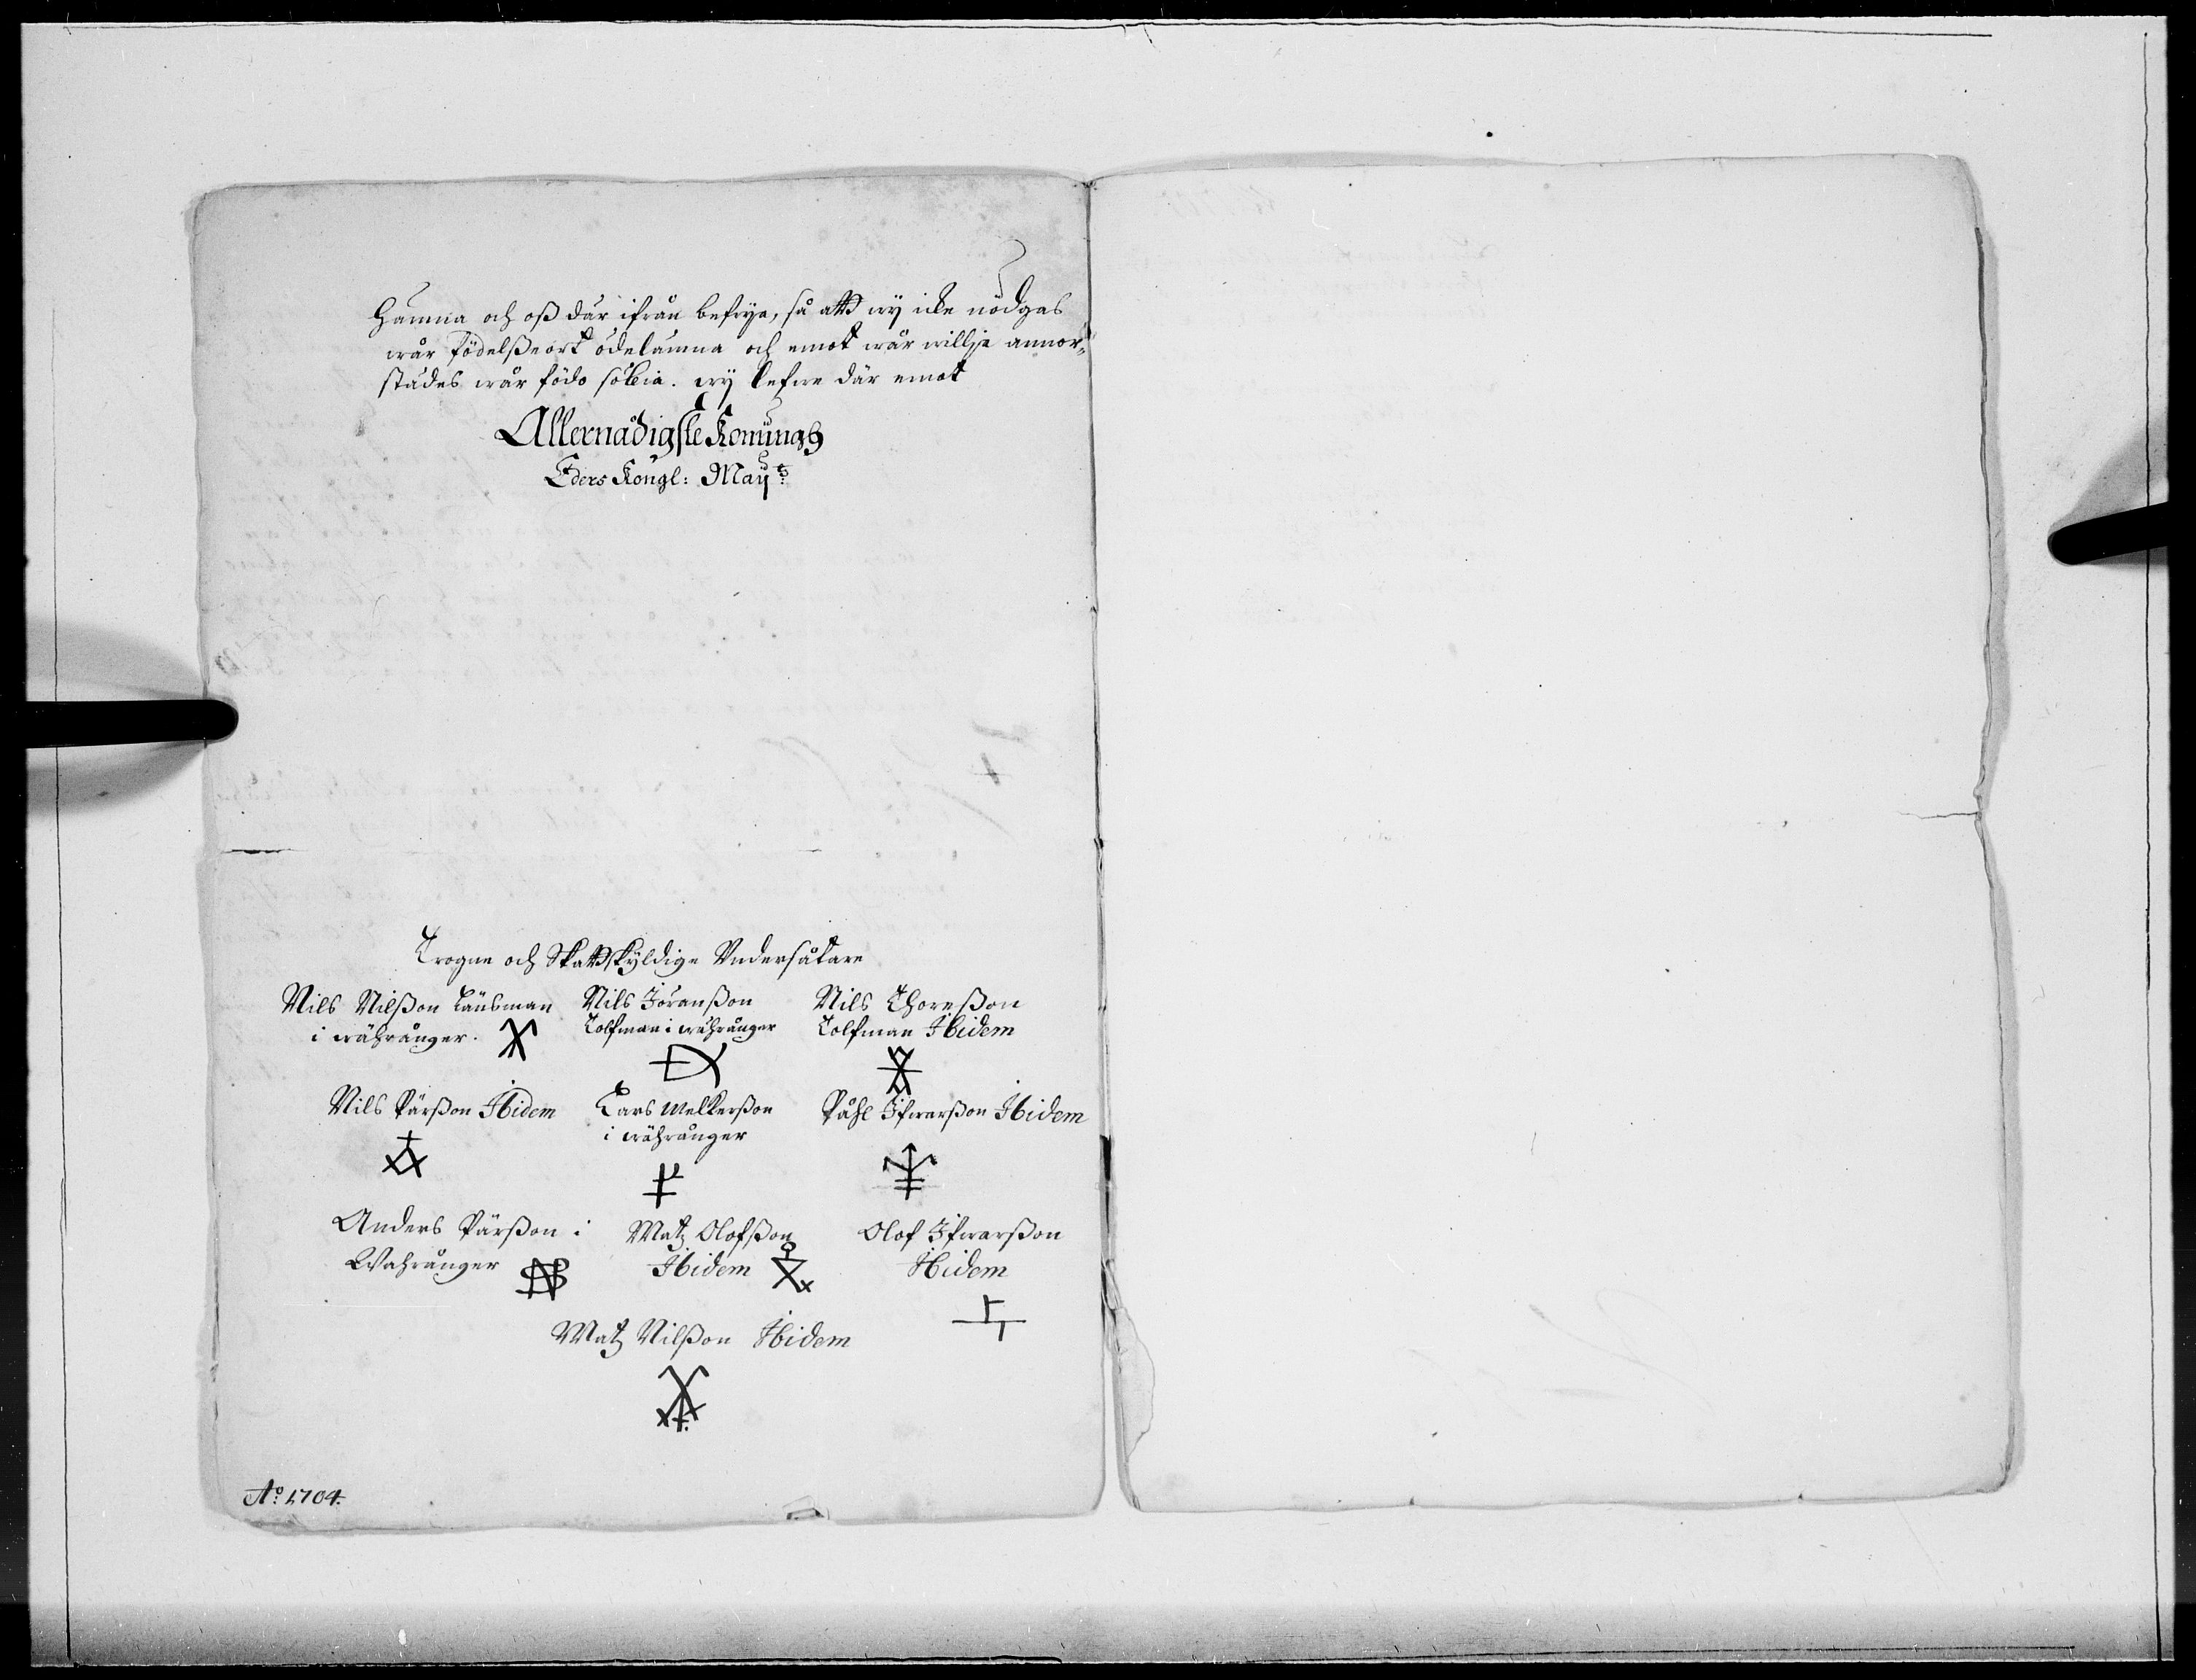 hämna och oß där ifrån befrya, så att wy icke nödgas
wår födelßeort ödelämna och emot wår willja annor„
städes wår födo sökia. wy lefwe där emot
Allernådigste Konungs
Eders Kongl: May:tz
Trogne och Skattskyldige Undersåtare
Nils Nilßon Länsman
i währånger.
Nils Jöranßon
Tolfman i währånger
Nils Thoreßon
Tolfman Ibidem
Nils Pärßon Ibidem
Lars Melkerßon
i währånger
Påhl Ifwarßon Ibidem
Anders Pärßon i
Wahrånger
Matz Olofßon
Ibidem
Olof Ifwarßon
Ibidem
Matz Nilßon Ibidem
Ao: 1704.